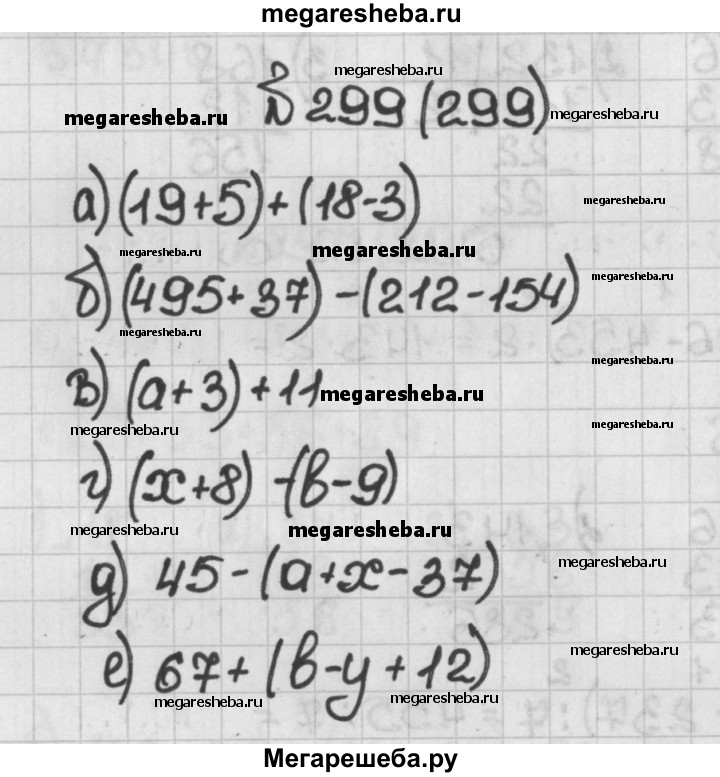 megaresheba.ru
megaresheba.ru
№ 299 (299)
megaresheba.ru
megaresheba.ru
а) (19+5)+(18-3)
megaresheba.ru
megaresheba.ru
megaresheba.ru
б) (495+37)-(212-154)
megaresheba.ru
megaresheba.ru
megaresheba.ru
в) (a+3)+11
megaresheba.ru
megaresheba.ru
megaresheba.ru
г) (x+8)-(b-9)
megaresheba.ru
megaresheba.ru
д) 45-(a+x-37)
megaresheba.ru
е) 67+(b-y+12)
megaresheba.ru
megaresheba.ru
megaresheba.ru
Мегарешеба.ру